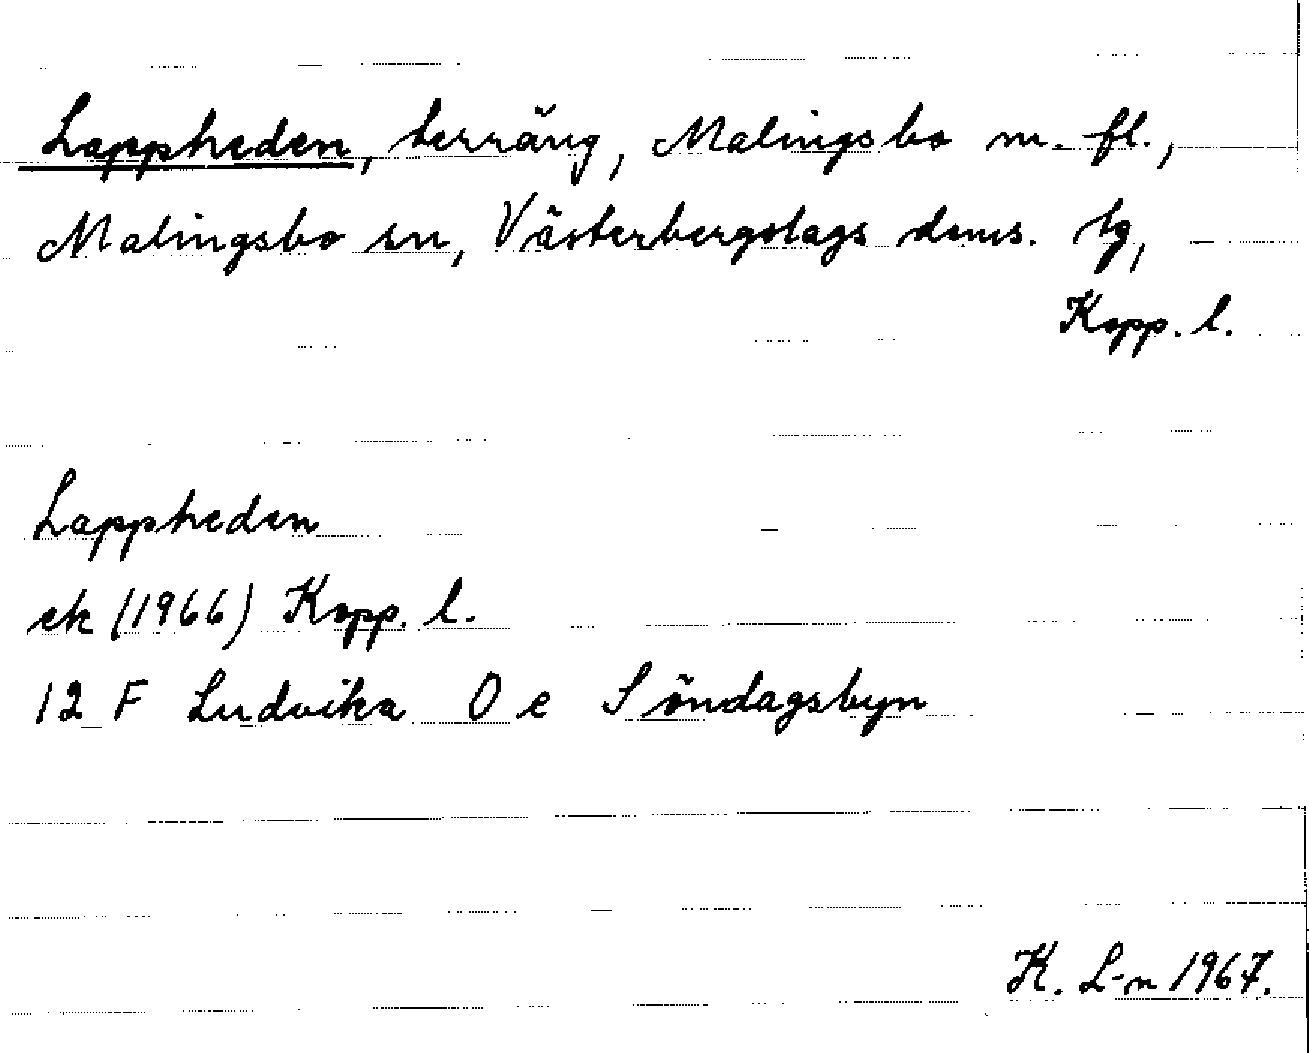 Lappheden, terräng, Malingsbo m. fl.,
Malingsbo sn, Västerbergslags doms. tg,
Kopp. l.
Lappheden
ek (1966) Kopp. l.
12 F Ludvika 0 e Söndagsbyn
K. L-n 1967.